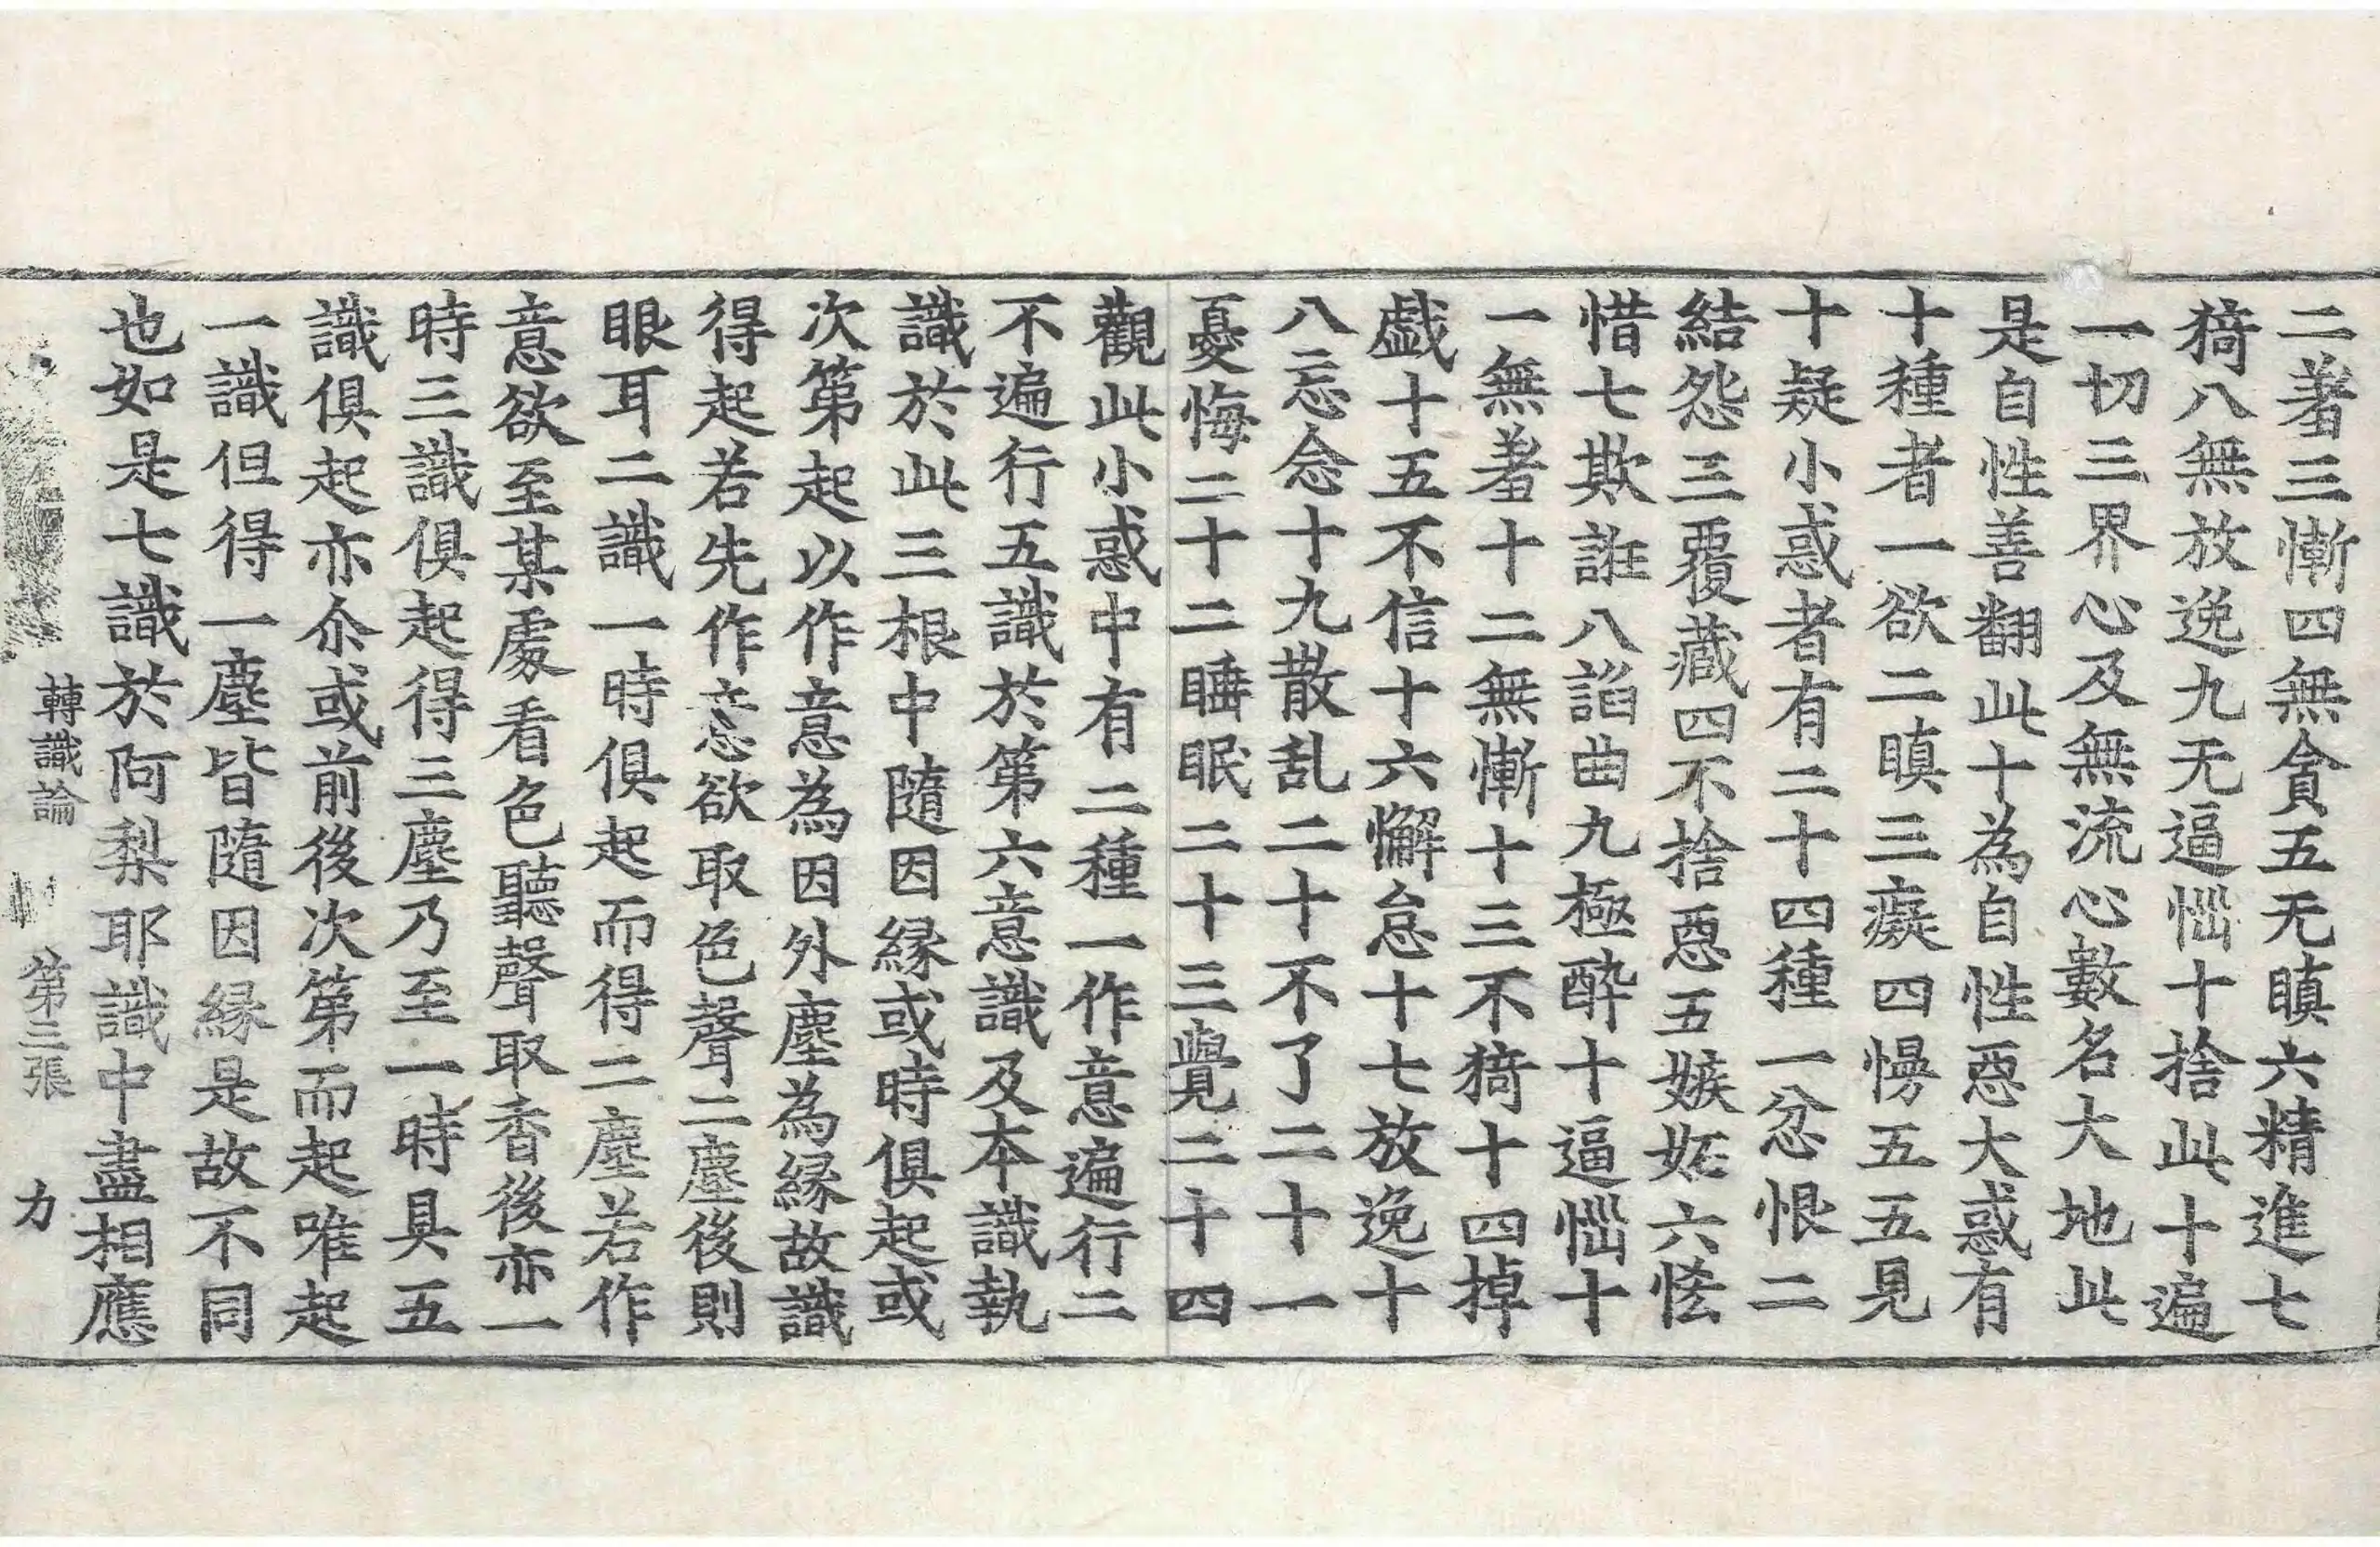 二著三慚四無貪五无瞋六精進七
猗八無放逸九无逼惱十捨此十遍
一切三界心及無流心數名大地此
是自性善翻此十為自性惡大惑有
十種者一欲二瞋三癡四慢五五見
十疑小惑者有二十四種一忿恨二
結怨三覆藏四不捨惡五嫉妬六恡
惜七欺誑八諂曲九極醉十逼惱十
一無羞十二無慚十三不猗十四掉
戱十五不信十六懈怠十七放逸十
八忘念十九散乱二十不了二十一
憂悔二十二睡眠二十三覺二十四
觀此小惑中有二種一作意遍行二
不遍行五識於第六意識及本識執
識於此三根中隨因縁或時俱起或
次第起以作意為因外塵為縁故識
得起若先作意欲取色聲二塵後則
眼耳二識一時俱起而得二塵若作
意欲至某處看色聽聲取香後亦一
時三識俱起得三塵乃至一時具五
識俱起亦尒或前後次第而起唯起
一識但得一塵皆隨因縁是故不同
也如是七識於阿梨耶識中盡相應
轉識論 第三張 力